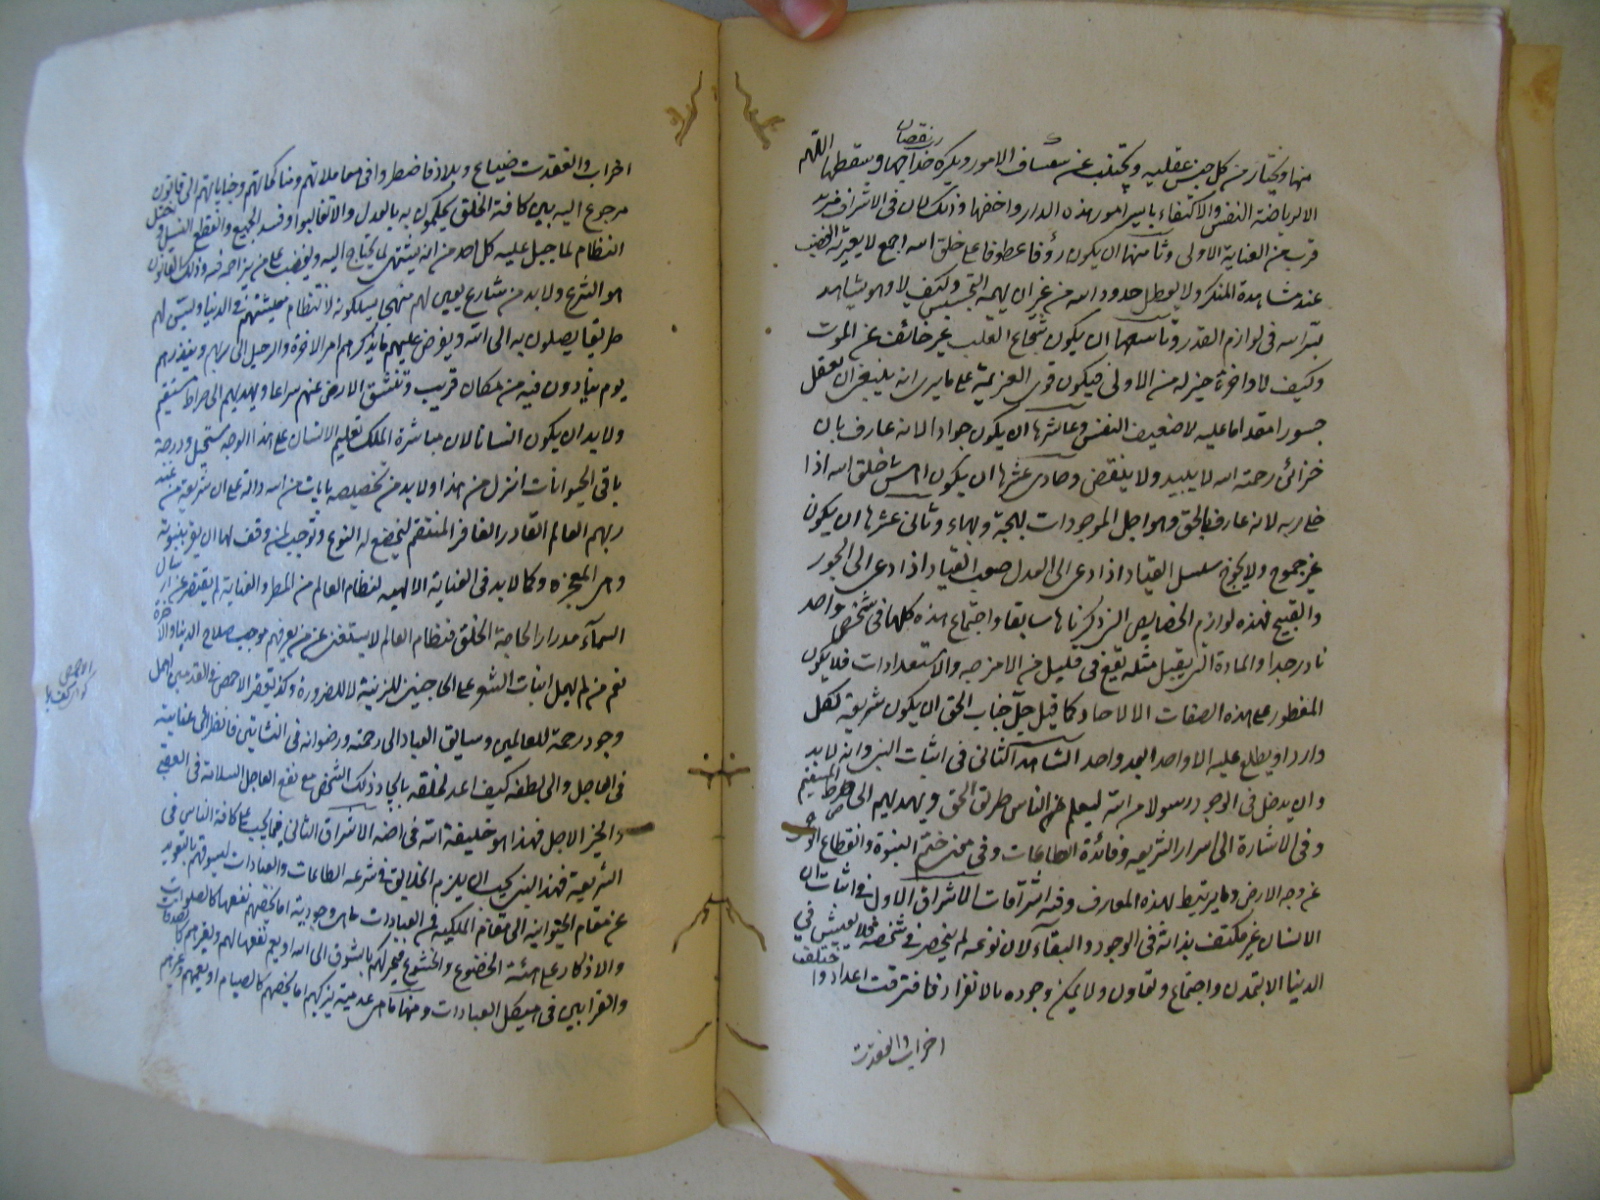 منها ويختار من كل جنس عقليه ويجتنب عن سفساف الامور ويكره خداجها وسقطها اللهم
ونقصان
الا لرياضة النفس والاكتفاء بايسر امور هذه الدار واخفها وذلك لان في الاشراف مزيد
قرب من العناية الاولى وثامنها ان يكون رؤفا عطوفا على خلق الله اجمع لا يعتريه الغضب
عند مشاهدة المنكر ولا يعطل حدود الله من غير ان يهمه التجسس وكيف لا وهو شاهد
لسر الله في لوازم القدر وتاسعها ان يكون شجاع القلب غير خائف من الموت
وكيف لا والاخرة خير له من الاولى فيكون قوى العزيمة على ما يرى انه ينبغي ان يفعل
جسورا مقداما عليه لا ضعيف النفس وعاشرها ان يكون جوادا لانه عارف بان
خزائن رحمة الله لا يبيد ولا ينقص وحادى عشرها ان يكون اهش خلق الله اذا
خلى بربه لانه عارف بالحق وهو اجل الموجودات بهجة وبهاء وثاني عشرها ان يكون
غير جموح ولا لجوج سلس القياد اذا دعى الى العدل صعب القياد اذا دعى الى الجور
والقبيح فهذه لوازم الخصايص التي ذكرناها سابقا واجتماع هذه كلها في شخص واحد
نادر جدا والمادة التي يقبل مثله يقع في قليل من الامزجه والاستعدادات فلا يكون
المفطور على هذه الصفات الا الاحاد كما قيل جل جناب الحق ان يكون شريعة لكل
وارد او يطلع عليه الا واحد بعد واحد الشاهد الثاني في اثبات النبي وانه لا بد
وان يدخل في الوجود رسول من الله ليعلم الناس طريق الحق ويهديهم الى صراط المستقيم
وفي الاشارة الى اسرار الشريعه وفائدة الطاعات وفي معنى ختم النبوة وانقطاع الوحى
عن وجه الارض وما يرتبط لهذه المعارف وفيه اشراقات الاشراق الاول في اثبات ان
الانسان غير مكتف بذاته في الوجود والبقاء لان نوعه لم ينحصر في شخصه فلا يعيش في
الدنيا الا بتمدن واجتماع وتعاون ولا يمكن وجوده بالانفراد فافترقت اعداد واختلفت
احزاب وانعقدت
احزاب وانعقدت ضياع وبلاد فاضطروا في معاملاتهم ومناكحاتهم وجناياتهم الى قانون
مرجوع اليه بين كافة الخلق يحكمون به بالعدل والا تغالبوا وفسد الجميع وانقطع النسل واختل
النظام لما جبل عليه كل احد من انه يشتهى لما يحتاج اليه ويغضب على من يزاحمه فيه وذلك القانون
هو الشرع ولا بد من شارع يعين لهم منهجا يسلكونه لانتظام معيشتهم في الدنيا ويسن لهم
طريقا يصلون به الى الله ويفرض عليهم ما يذكرهم امر الاخرة والرحيل الى ربهم وينذرهم
يوم ينادون فيه من مكان قريب وتنشق الارض عنهم سراعا ويهديهم الى صراط مستقيم
ولا بد ان يكون انسانا لان مباشرة الملك تعليم الانسان على هذا الوجه مستحيل ودرجة
باقي الحيوانات انزل من هذا ولا بد من تخصيصه بايات من الله دالة على ان شريعته من عند
ربهم العالم القادر الغافر المنتقم ليخضع له النوع وتوجب لمن وقف لها ان يقر بنبوته
وهي المعجزه وكما لا بد في العناية الالهيه لنظام العالم من المطر والعناية لم يقتصر عن ارسال
السماء مدرارا لحاجة الخلق فنظام العالم لا يستغنى عن من يعرفهم موجب صلاح الدنيا والاخرة
نعم من لم يهمل انبات الشعر على الحاجبين للزينة لا للضرورة وكذا تقعير الاخمص في القدمين اهمل
الاخمص
وجود رحمة للعالمين وسائق العباد الى رحمته ورضوانه في النشاتين فانظر الى عنايته
في العاجل والى لطفه كيف اعد لخلقه بايجاد ذلك الشخص مع نفع العاجل السلامة في العقبى
والخير الاجل فهذا هو خليفة الله في ارضه الاشراق الثاني فيما يجب على كافة الناس في
الشريعة فهذا النبي يجب ان يلزم الخلائق في شرعه الطاعات والعبادات ليسوقهم بالتعويد
عن مقام الحيوانية الى مقام الملكيه فمن العبادات ما هي وجودية اما يخصهم نفعها كالصلوات
والاذكار على هيئة الخضوع والخشوع فيحركهم بالشوق الى الله او يعم نفعها لهم ولغيرهم كالصدقات
والقرابين في هيكل العبادات ومنها ما هي عدمية يزكيهم اما يخصهم كالصيام او يعمهم وغيرهم